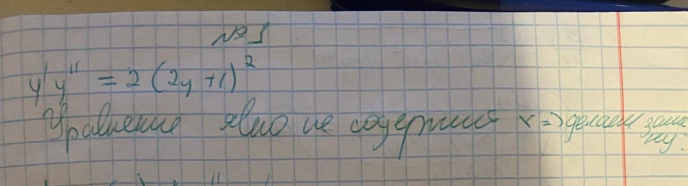 №1
y'y'' = 2(2y+1)²
Уравнение явно не содержит x => делаем замену: